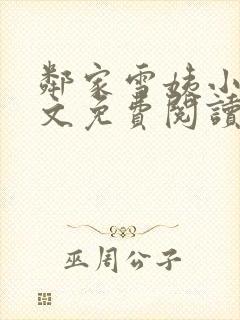 鄰家雪姨小
文免費閱讀
巫周公子